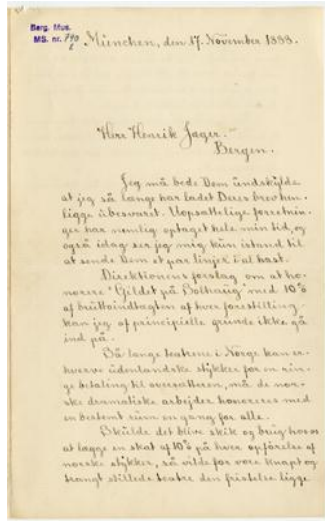 Berg. Mus.
MS. nr. 790
München, den 17. November 1888.
Herr Henrik Jæger.
Bergen.
Jeg må bede Dem undskylde
at jeg så længe har ladet Deres brev hen-
ligge ubesvaret. Uopsættelige forretnin-
ger har nemlig optaget hele min tid, og
også idag ser jeg mig kun istand til
at sende Dem et par linjer i al hast.
Direktionens forslag om at ho-
norere "Gildet på Solhaug" med 10%
af bruttoindtægten af hver forestilling
kan jeg af principielle grunde ikke gå
ind på.
Så længe teatrene i Norge kan er-
hverve udenlandske stykker for en rin-
ge betaling til oversætteren, må de nor-
ske dramatiske arbejder honoreres med
en bestemt sum en gang for alle.
Skulde det blive skik og brug hos os
at lægge en skat af 10% på hver opførelse af
norske stykker, så vilde for vore knapt og
trangt stillede teatre den fristelse ligge